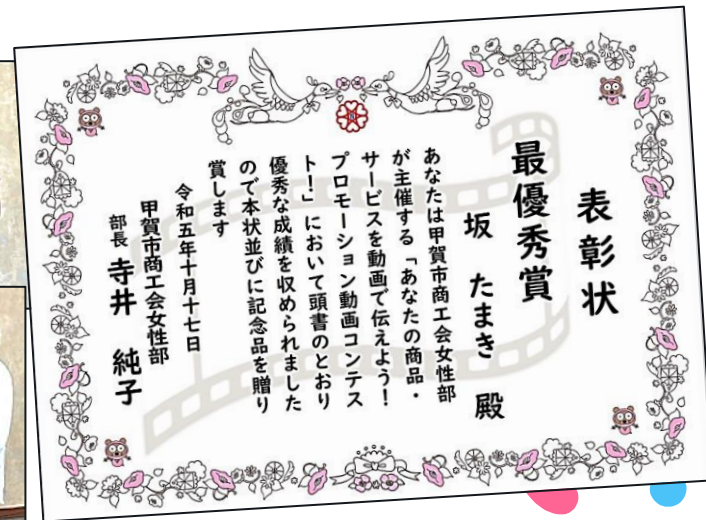 表彰状
最優秀賞
坂 たまき 殿
あなたは甲賀市商工会女性部
が主催する「あなたの商品・
サービスを動画で伝えよう！
プロモーション動画コンテス
ト！」において頭書のとおり
優秀な成績を収められました
ので本状並びに記念品を贈り
賞します
令和五年十月十七日
甲賀市商工会女性部
部長 寺井 純子